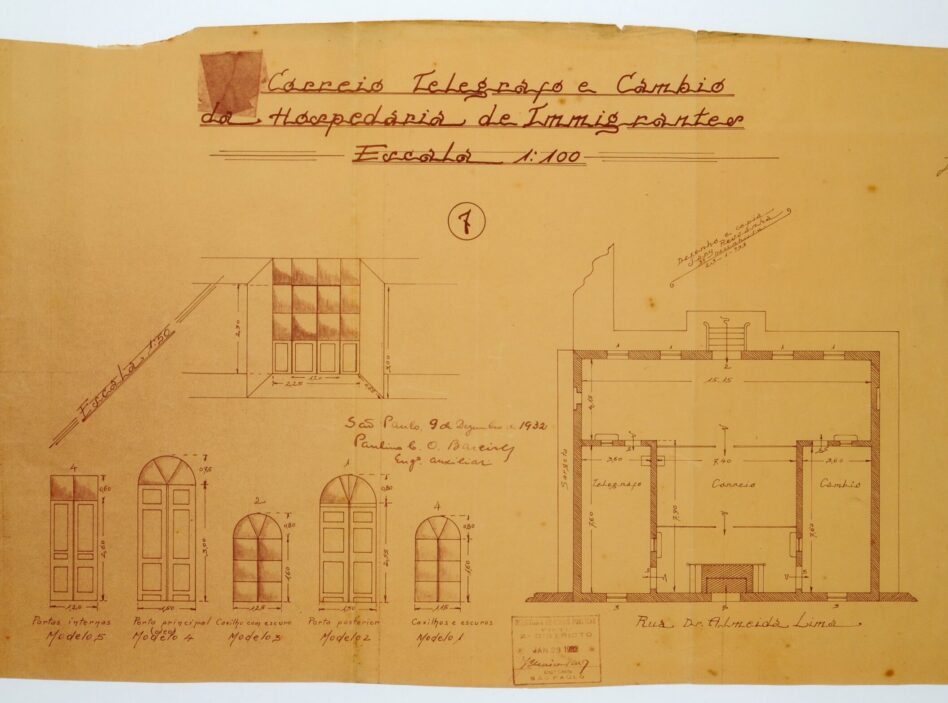 Correio Telegrafo e Cambio
da Hospedaria de Immigrantes
Escala 1:100
7
Desenho e copia
23-1-933
Escala 1:50
2,90
3,00
1,20
2,25
São Paulo, 9 de Dezembro de 1932
Paulino C. O.
Engº auxiliar
4
0,60
2,60
1,20
Portas internas
Modelo, 5
0,75
3,00
1,50
Porta principal
Modelo 4
2
0,80
1,60
1,25
Caxilho com escuro
Modelo 3
1
0,80
2,55
1,50
Porta posterior
Modelo 2
4
0,80
1,60
1,15
Caxilhos e escuros
Modelo 1
1
1
2
1
1
15,15
4,15
3,60
7,40
3,60
Sargeta
Telegrafo
Correio
Cambio
7,60
7,90
7,60
3
3
Rua Dr. Almeida Lima
2º DISTRICTO
JAN 23 1933
SÃO PAULO